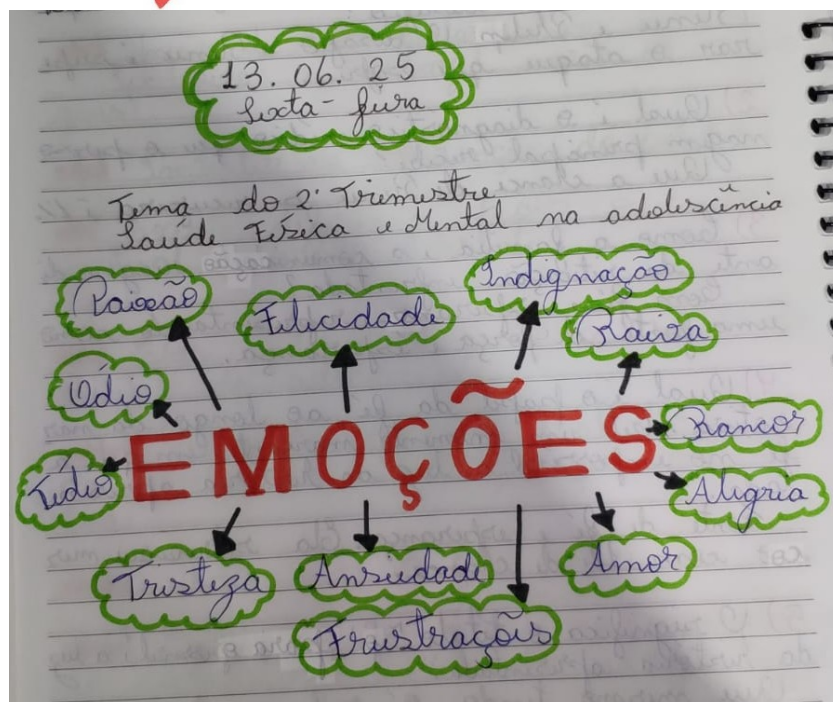 13.06.25
Sexta-feira
Tema do 2º Trimestre
Saúde Física e Mental na adolescência
Paixão
Felicidade
Indignação
Raiva
Ódio
EMOÇÕES
Rancor
Tédio
Alegria
Tristeza
Ansiedade
Amor
Frustrações